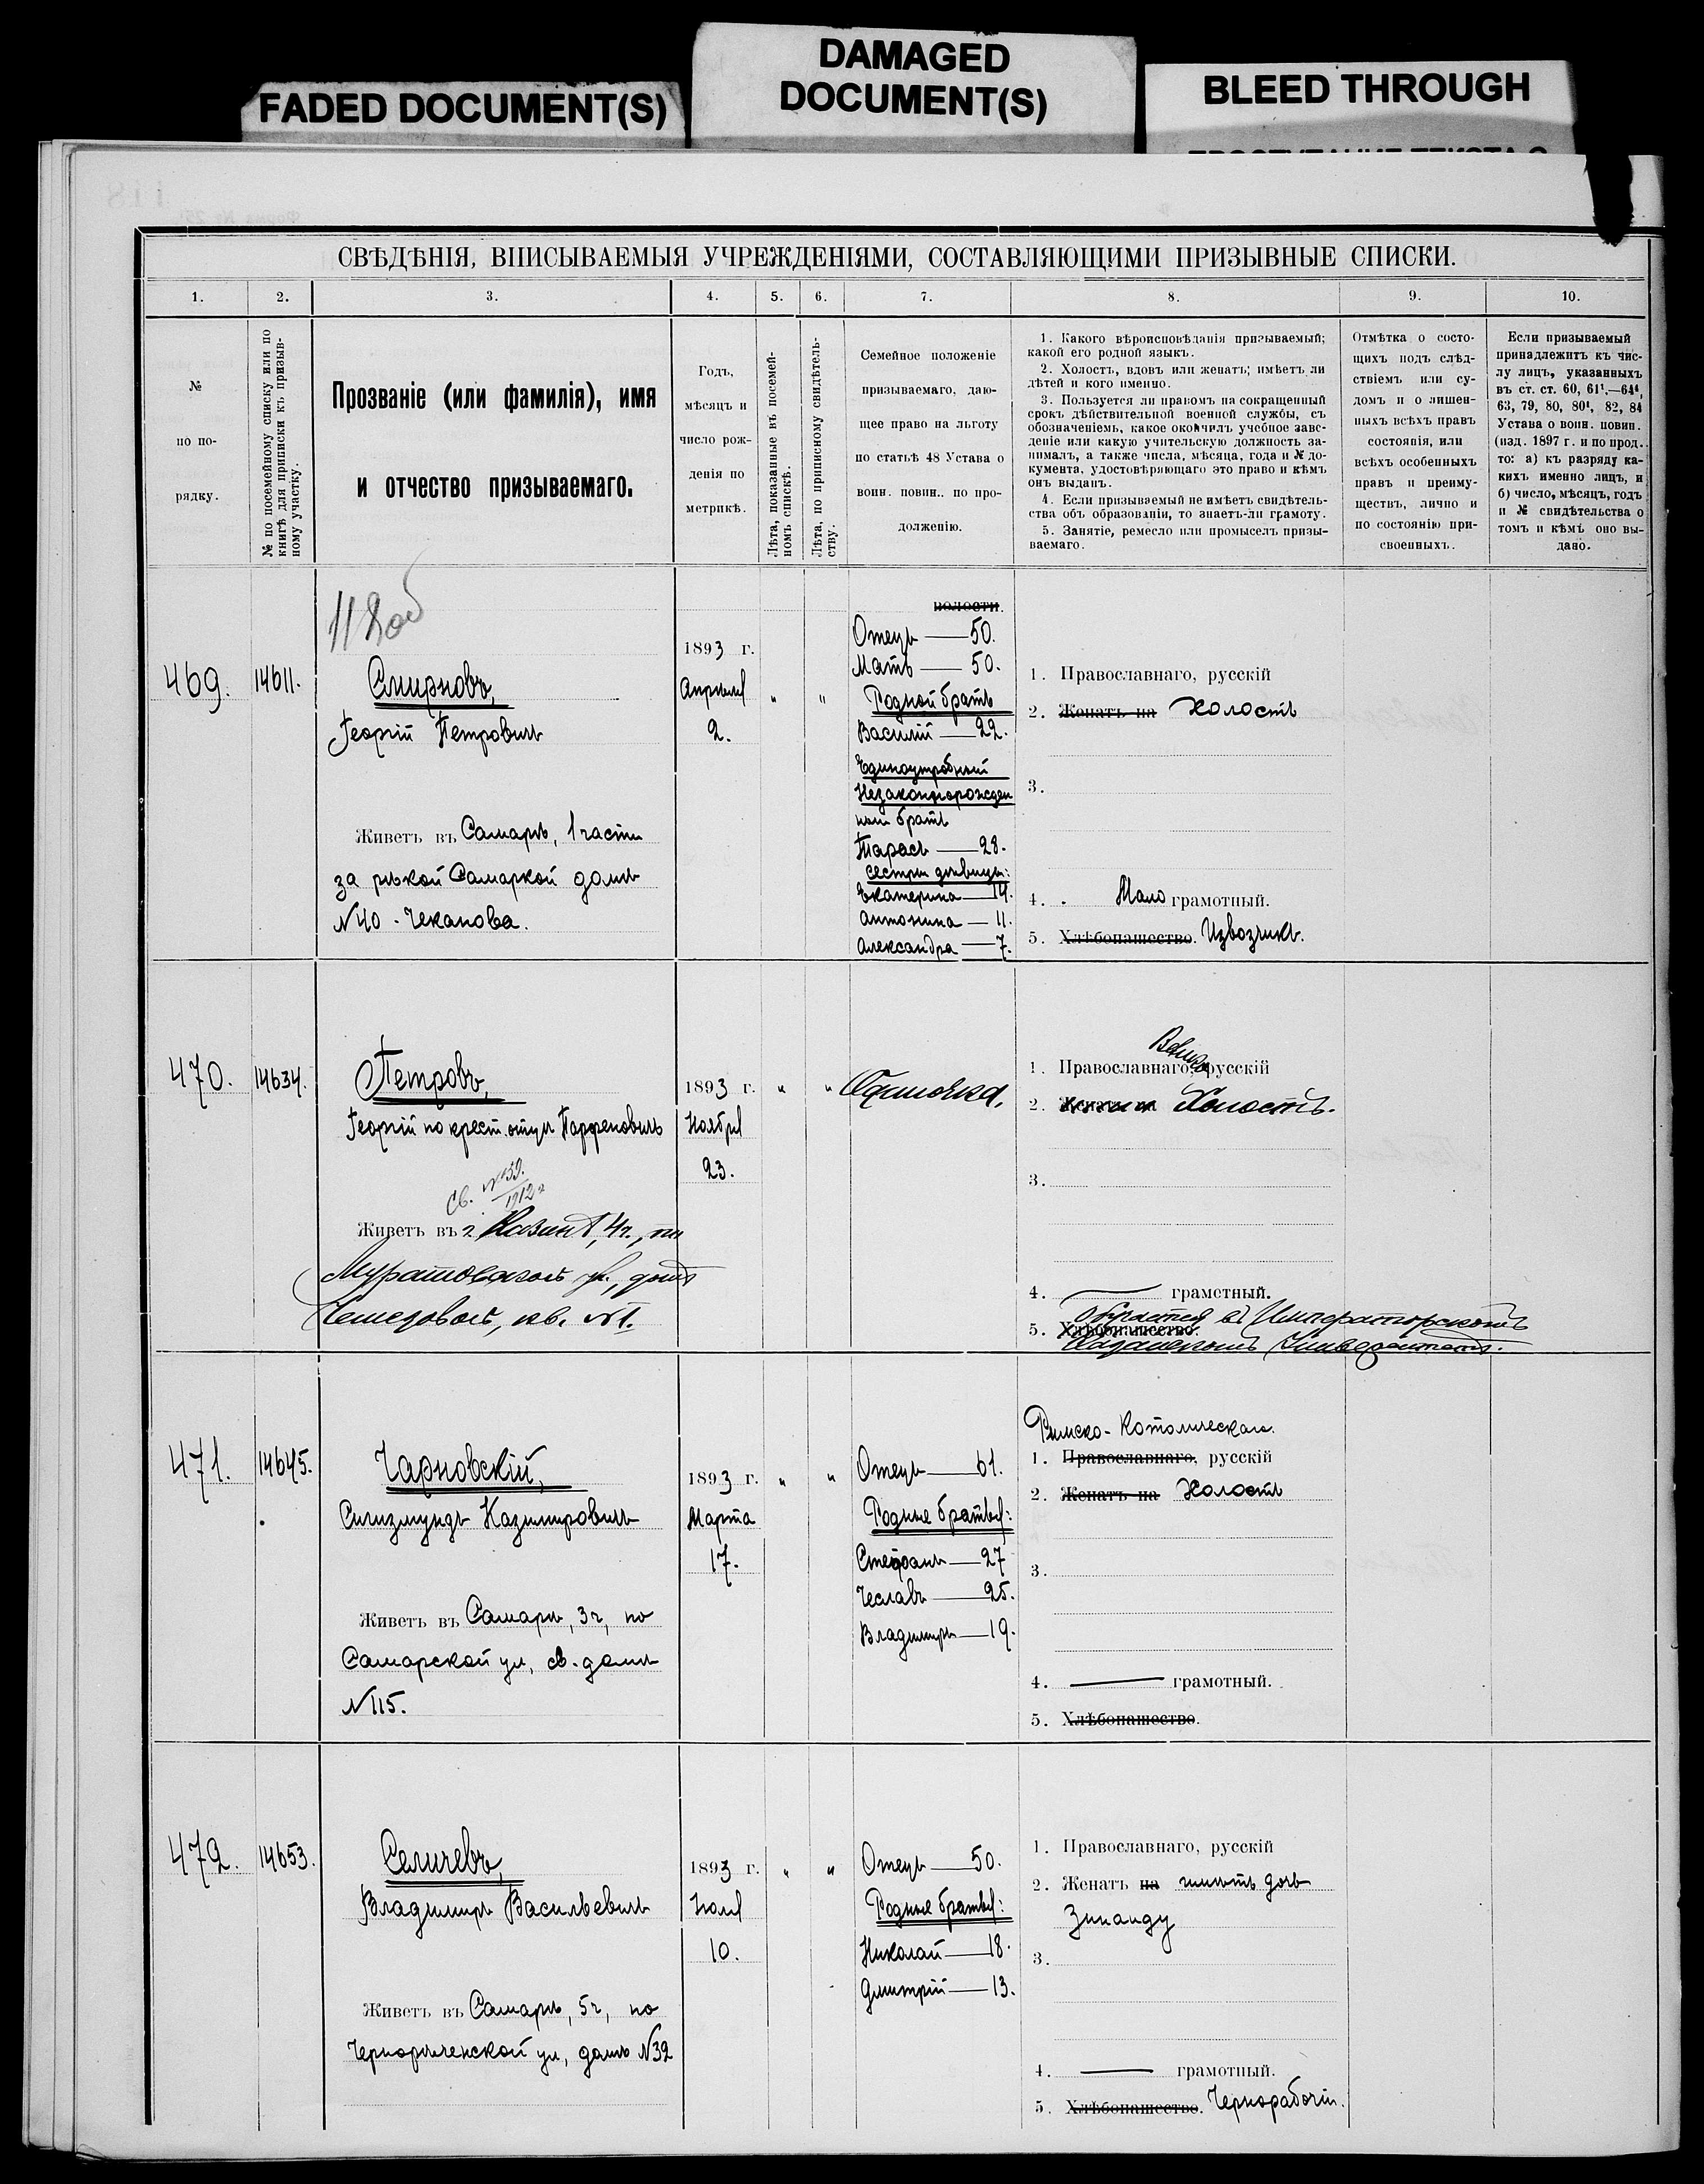 FADED DOCUMENT(S)
DAMAGED
DOCUMENT(S)
BLEED THROUGH
СВѢДѢНІЯ, ВПИСЫВАЕМЫЯ УЧРЕЖДЕНІЯМИ, СОСТАВЛЯЮЩИМИ ПРИЗЫВНЫЕ СПИСКИ.
1. 2. 3. 4. 5. 6. 7. 8. 9. 10.
№
по по-
рядку.
№ по посемейному списку или по
книгѣ для приписки къ призыв-
ному участку.
Прозваніе (или фамилія), имя
и отчество призываемаго.
Годъ,
мѣсяцъ и
число рож-
денія по
метрикѣ.
Лѣта, показанные въ посемей-
номъ спискѣ.
Лѣта, по приписному свидѣтель-
ству.
Семейное положеніе
призываемаго, даю-
щее право на льготу
по статьѣ 48 Устава о
воин. повин.. по про-
долженію.
1. Какого вѣроисповѣданія призываемый;
какой его родной языкъ.
2. Холостъ, вдовъ или женатъ; имѣетъ ли
дѣтей и кого именно.
3. Пользуется ли правомъ на сокращенный
срокъ дѣйствительной военной службы, съ
обозначеніемъ, какое окончилъ учебное заве-
деніе или какую учительскую должность за-
нималъ, а также числа, мѣсяца, года и № до-
кумента, удостовѣряющаго это право и кѣмъ
онъ выданъ.
4. Если призываемый не имѣетъ свидѣтель-
ства объ образованіи, то знаетъ-ли грамоту.
5. Занятіе, ремесло или промыселъ призы-
ваемаго.
Отмѣтка о состо-
щихъ подъ слѣд-
ствіемъ или су-
домъ и о лишен-
ныхъ всѣхъ правъ
состоянія, или
всѣхъ особенныхъ
правъ и преиму-
ществъ, лично и
по состоянію при-
своенныхъ.
Если призываемый
принадлежитъ къ чис-
лу лицъ, указанныхъ
въ ст. ст. 60, 61¹.—64⁴,
63, 79, 80, 80¹, 82, 84
Устава о воин. повин.
(изд. 1897 г. и по прод..
то: а) къ разряду ка-
кихъ именно лицъ, и
б) число, мѣсяцъ, годъ
и № свидѣтельства о
томъ и кѣмъ оно вы-
дано.
469.
14611.
Смирновъ,
Георгій Петровичъ
Живетъ въ Самарѣ, 1 части
за рѣкой Самаркой домъ
№40 - Чеканова.
1893 г.
Апрѣля
2.
" "
волости.
Отецъ — 50.
Мать — 50.
Родной братъ
Василій — 22.
Единоутробный
Незаконнорожден
ный братъ
Тарасъ — 28.
сестры дѣвицы:
Екатерина — 14.
Антонина — 11.
Александра — 7.
1. Православнаго, русскій
2. Женатъ на Холостъ
3.
4. Мало грамотный.
5. Хлѣбопашество. Извозчикъ.
470.
14634.
Петровъ,
Георгій по крест. отцу Парфеновичъ
Св. №39.
1912 г
Живетъ въ г. Казани, 4 ч., по
Муратовской ул., домъ
кв. №1.
1893 г.
Ноября
23.
" "
Одиночка.
Велико
1. Православнаго, русскій
2. Женатъ на Холостъ.
3.
4. — грамотный.
5. Хлѣбопашество. обучается въ Императорскомъ
Казанскомъ Университетѣ.
471.
14645.
Чарновскій,
Сигизмундъ Казимировичъ
Живетъ въ Самарѣ, 3 ч, по
Самарской ул, св. домъ
№115.
1893 г.
Марта
17.
" "
Отецъ — 61.
Родные братья:
Стефанъ — 27
Чеславъ — 25.
Владимиръ — 19.
Римско-Католическаго.
1. Православнаго, русскій
2. Женатъ на Холостъ
3.
4. — грамотный.
5. Хлѣбопашество.
472.
14653.
Селичевъ,
Владимиръ Васильевичъ
Живетъ въ Самарѣ, 5 ч, по
Чернорѣченской ул, домъ №32
1893 г.
Іюля
10.
" "
Отецъ — 50.
Родные братья:
Николай — 18.
Дмитрій — 13.
1. Православнаго, русскій
2. Женатъ на имѣетъ дочь
Зинаиду
3.
4. — грамотный.
5. Хлѣбопашество. Чернорабочій.